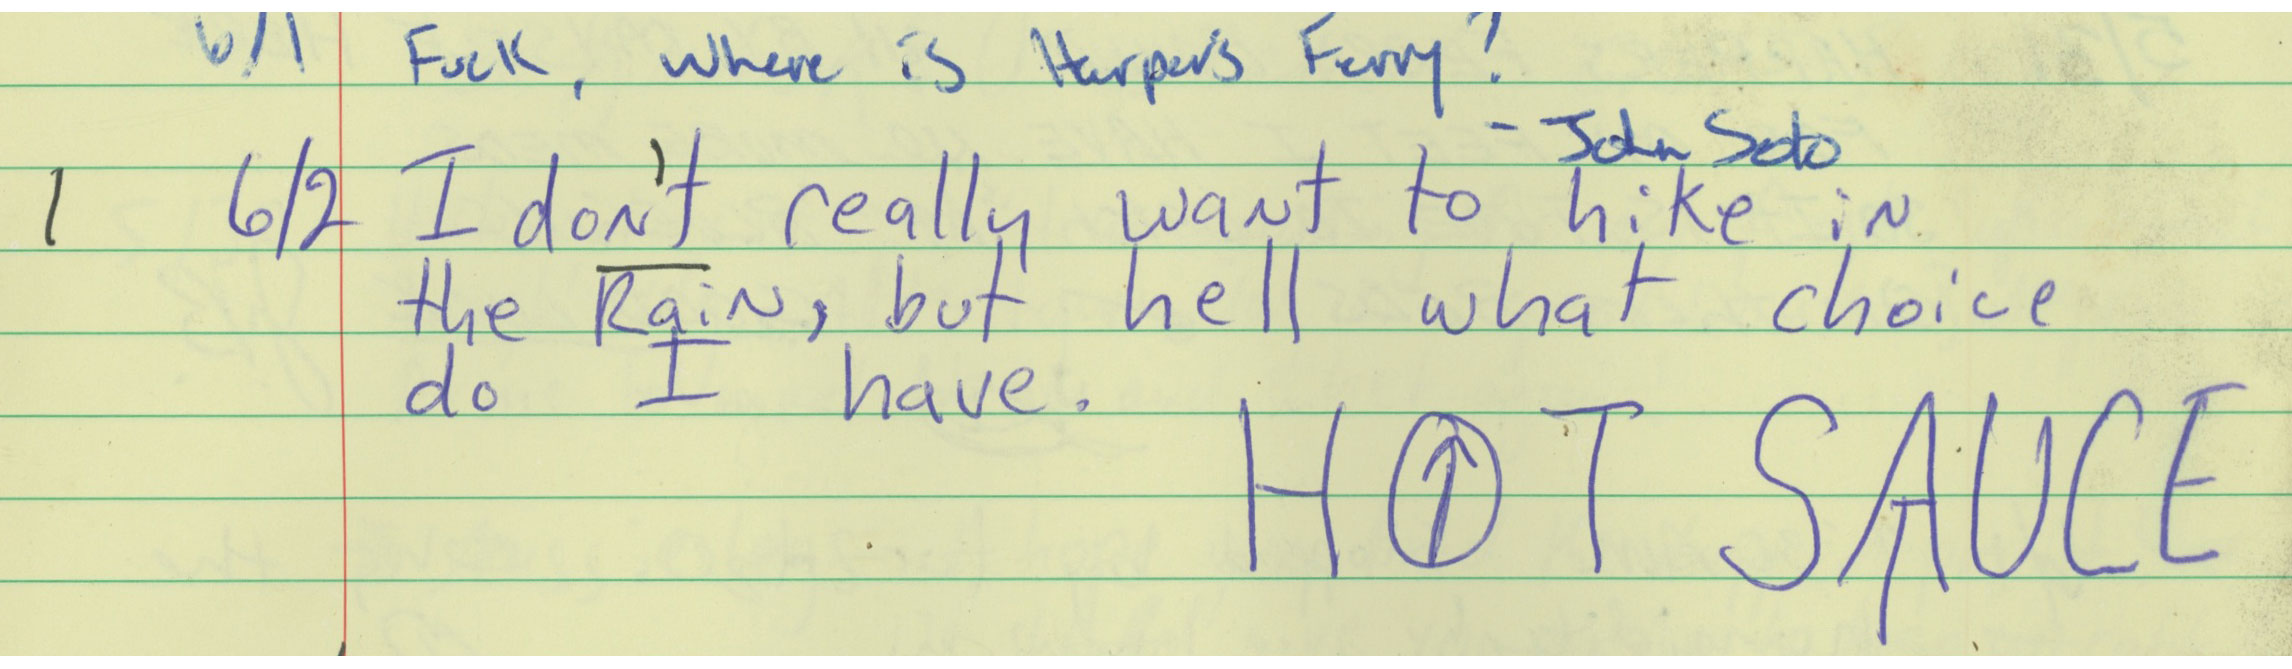 6/1 Fuck, where is Harper's Ferry?
- John Soto
1 6/2 I don't really want to hike in
the Rain, but hell what choice
do I have.
HOT SAUCE